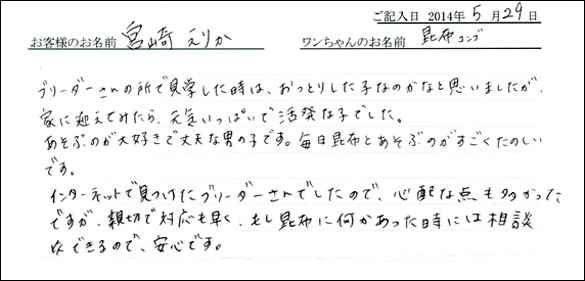 ご記入日 2014年 5月29日
お客様のお名前 宮崎 えりか ワンちゃんのお名前 昆布 コンブ
ブリーダーさんの所で見学した時は、おっとりした子なのかなと思いましたが、
家に迎えてみたら、元気いっぱいで活発な子でした。
あそぶのが大好きで丈夫な男の子です。毎日昆布とあそぶのがすごくたのしい
です。
インターネットで見つけたブリーダーさんでしたので、心配な点も多かった
ですが、親切で対応も早く、もし昆布に何かあった時には相談
はできるので、安心です。